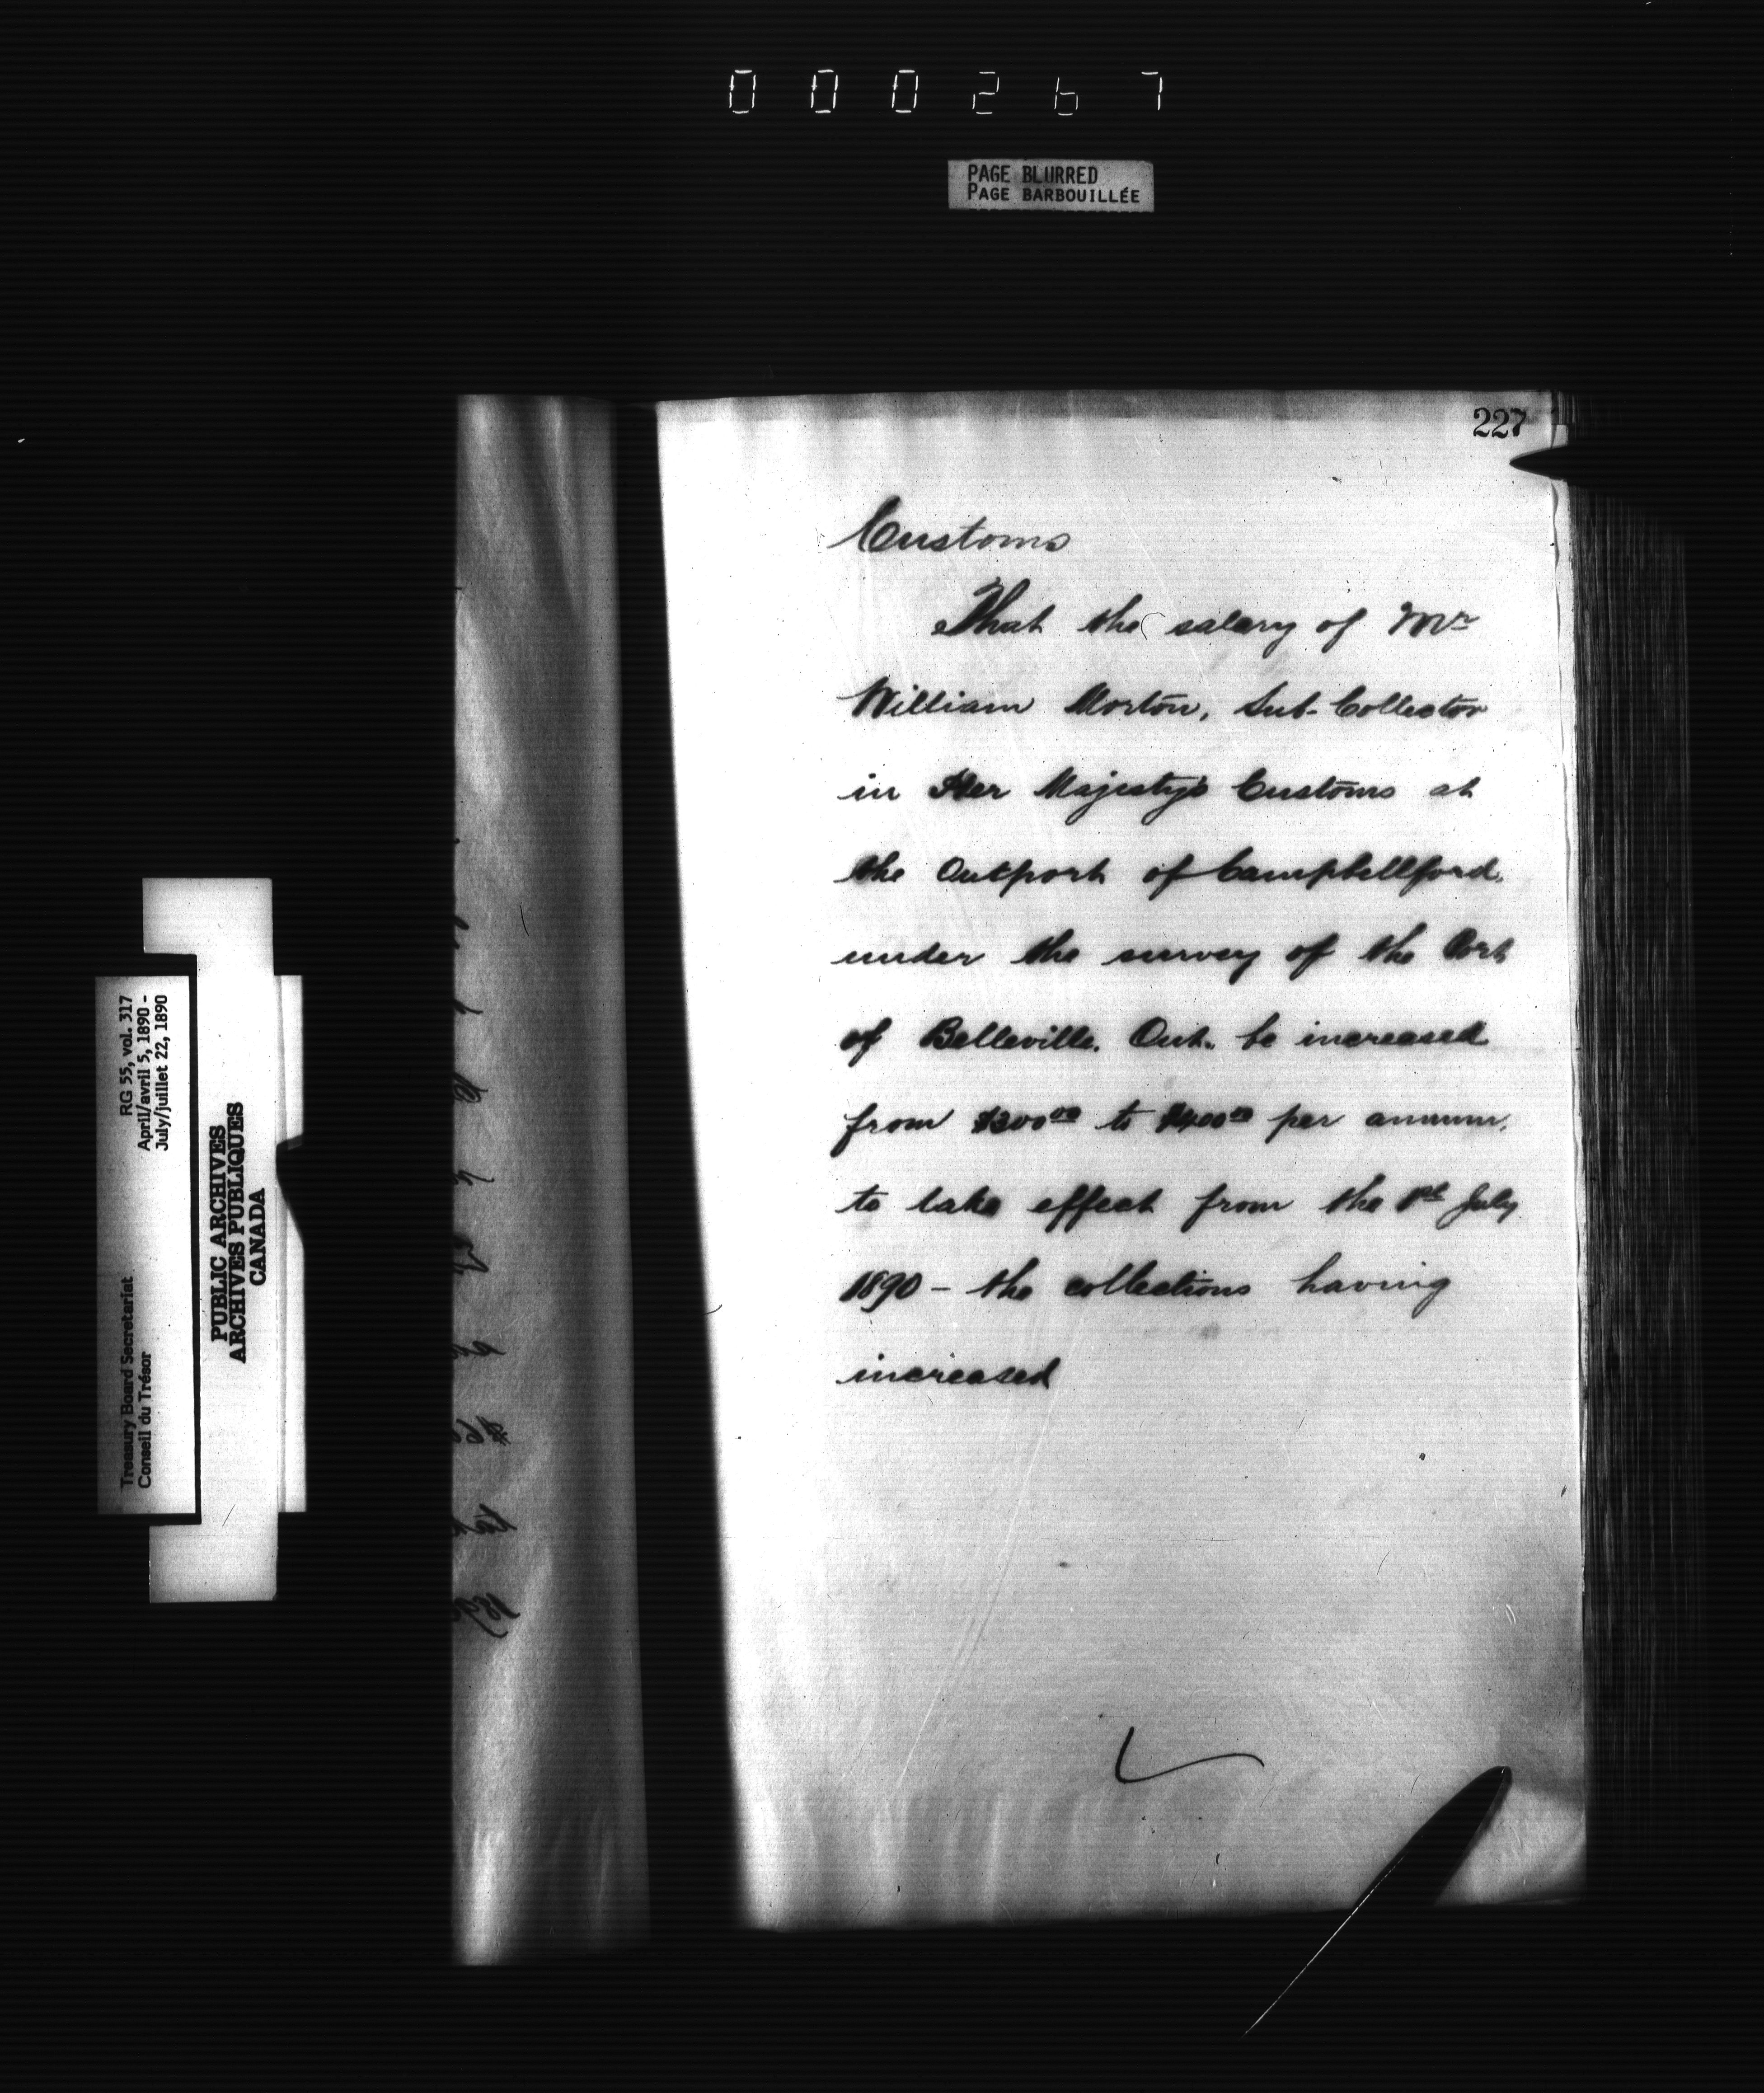 000267
PAGE BLURRED
PAGE BARBOUILLÉE
227
Customs
That the salary of Mr
William Morton, Sub-Collector
in Her Majesty's Customs at
the Outport of Campbellford,
under the survey of the Port
of Belleville, Ont., be increased
from $300.00 to $400.00 per annum,
to take effect from the 1st July
1890 - the collections having
increased
RG 55, vol. 317
April/avril 5, 1890 -
July/juillet 22, 1890
Treasury Board Secretariat
Conseil du Trésor
PUBLIC ARCHIVES
ARCHIVES PUBLIQUES
CANADA